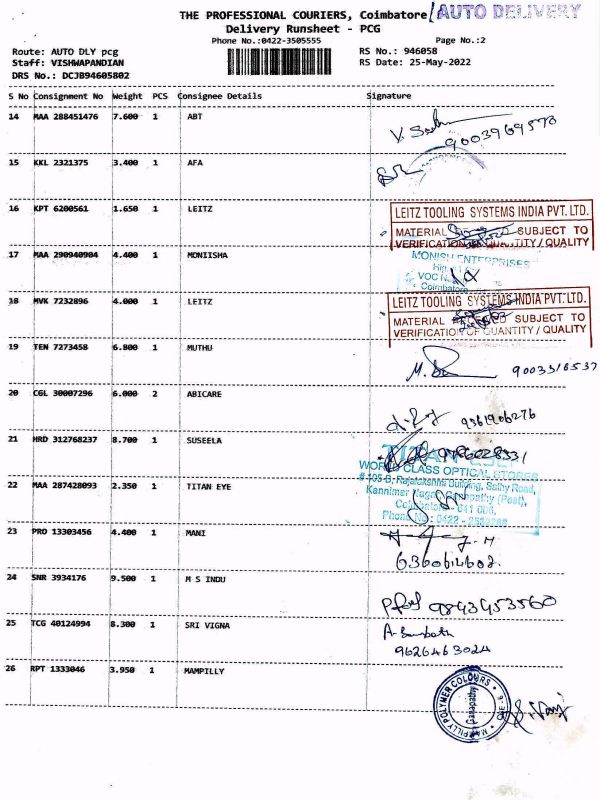 THE PROFESSIONAL COURIERS, Coimbatore/AUTO DELIVERY
Delivery Runsheet - PCG
Phone No.:0422-3505555 Page No.:2
Route: AUTO DLY pcg RS No.: 946058
Staff: VISHWAPANDIAN RS Date: 25-May-2022
DRS No.: DCJB94605802
S No Consignment No Weight PCS Consignee Details Signature
14 MAA 288451476 7.600 1 ABT
9003969570
15 KKL 2321375 3.400 1 AFA
16 KPT 6200561 1.650 1 LEITZ
LEITZ TOOLING SYSTEMS INDIA PVT. LTD.
MATERIAL SUBJECT TO
VERIFICATION QUANTITY / QUALITY
17 MAA 290940904 4.400 1 MONIISHA
MONISH ENTERPRISES
VOC
Coimbatore
18 MVK 7232896 4.000 1 LEITZ
LEITZ TOOLING SYSTEMS INDIA PVT. LTD.
MATERIAL SUBJECT TO
VERIFICATION OF QUANTITY / QUALITY
19 TEN 7273458 6.800 1 MUTHU
9003316537
20 CGL 30007296 6.000 2 ABICARE
9361906276
21 HRD 312768237 8.700 1 SUSEELA
TITAN
WORLD CLASS OPTICAL STORES
# 105-B, Rajalakshmi Building, Sathy Road,
22 MAA 287428093 2.350 1 TITAN EYE
Kannimar Nagar, Ganapathy (Post),
Coimbatore - 641 006,
Phone No : 0422 -
23 PRO 13303456 4.400 1 MANI
6360614602.
24 SNR 3934176 9.500 1 M S INDU
9843453560
25 TCG 40124994 8.300 1 SRI VIGNA
9626463024
26 RPT 1333046 3.950 1 MAMPILLY
MAMPILLY POLYMER COLOURS